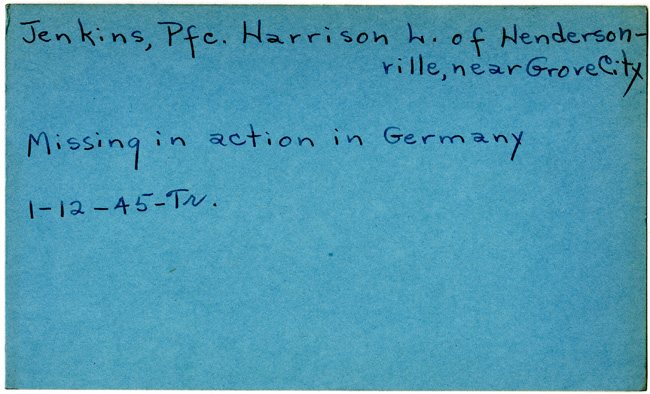 Jenkins, Pfc. Harrison L. of Henderson-
ville, near Grove City
Missing in action in Germany
1-12-45-Tr.